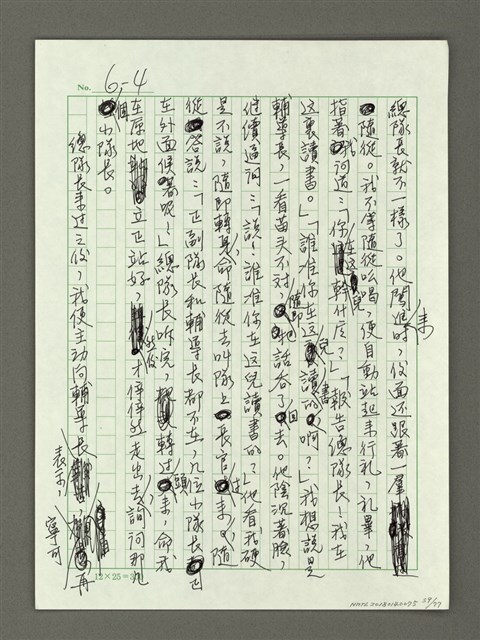 No. 6-4
總隊長就不一樣了。他闖進時，後面還跟著一羣
隨從。我不等隨從吆喝，便自動站起来行礼，礼畢，他
指著我问道：「你在这兒幹什庅？」「報告總隊長！我在
这裏讀書。」「誰准你在这兒讀書的啊？」我想説是
輔導長，一看苗头不对，随即把話吞了回去。他陰沉著臉，
继續逼问：「説！誰准你在这兒讀書的？」他看我硬
是不説，隨即轉身，命随從去叫隊上長官过来。隨
從答説：「正副隊長和輔導長都不在，九位小隊長正
在外面候著呢！」總隊長听完，轉过頭来，命我
在原地立正站好，然後才悻悻然走出去，詢问那
個小隊長。
總隊長来过之後，我便主动向輔導長表示，寧可再
12×25=3
NMTL20180180075 59/77